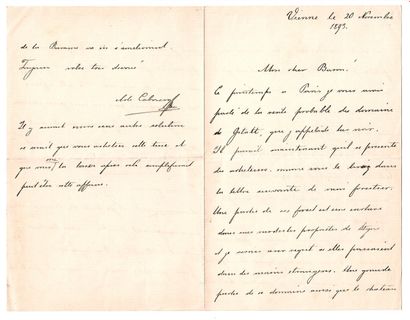 Vienne le 20 Novembre
1893.
Mon cher Baron!
Ce printemps à Paris je vous avais
parlé de la vente probable du domaine
de que j'appelais la
Il paraît maintenant qu'il se présente
des acheteurs, comme vous le dans
la lettre suivante de mon forestier.
Une partie de ces forêt est une enclave
dans mes modestes propriétés de
et je verrais avec regret si elles passaient
dans des mains étrangères. Une grande
partie de ce domaine ainsi que le château
de la va en s'améliorant.
Toujours votre très dévoué
Il y aurait encore une autre solution
ce serait que vous achetiez cette terre et
que vous me la après cela simplifierait
peut être cette affaire.